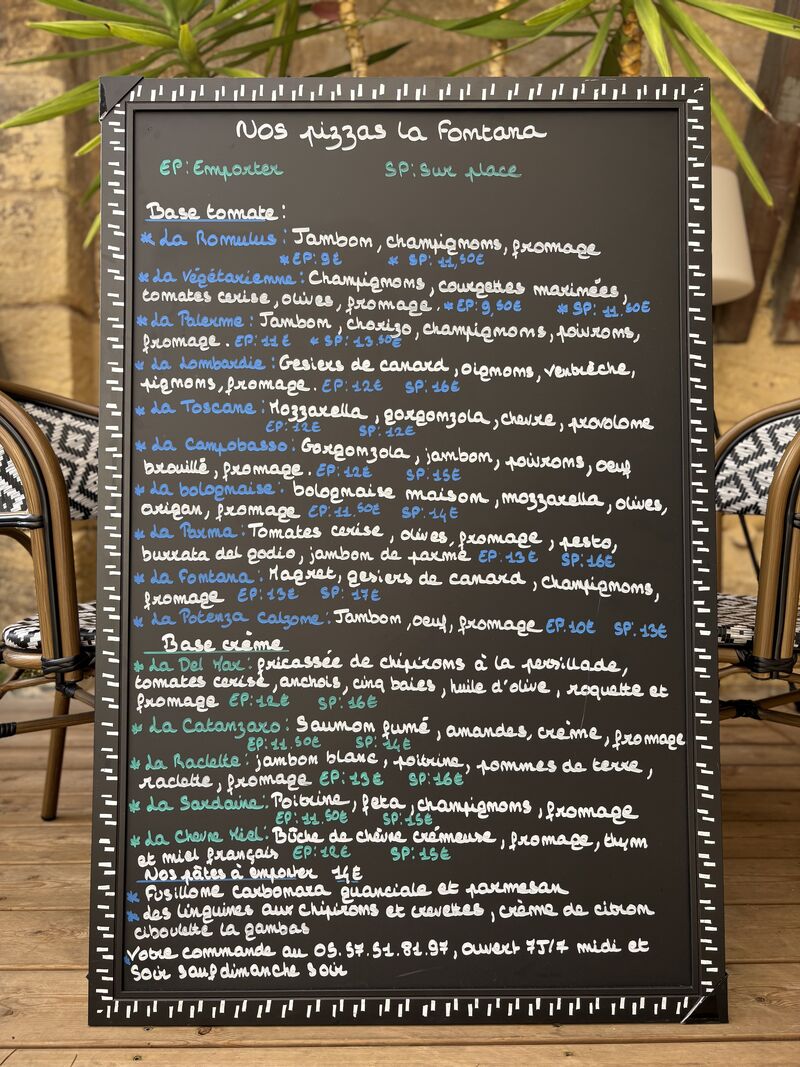 Nos pizzas la Fontana
EP: Emporter SP: Sur place
Base tomate:
* La Romulus: Jambon, champignons, fromage
* EP: 9€ * SP: 11,50€
* La Végétarienne: Champignons, courgettes marinées,
tomates cerise, olives, fromage. * EP: 9,50€ * SP: 11.50€
* La Palerme: Jambon, chorizo, champignons, poivrons,
fromage. EP: 11€ * SP: 13.50€
* La Lombardie: Gesiers de canard, oignons, ventrèche,
pignons, fromage. EP: 12€ SP: 16€
* La Toscane: Mozzarella, gorgonzola, chevre, provolone
EP: 12€ SP: 12€
* La Campobasso: Gorgonzola, jambon, poivrons, oeuf
brouillé, fromage. EP: 12€ SP: 15€
* La bolognaise: bolognaise maison, mozzarella, olives,
origan, fromage EP: 11.50€ SP: 14€
* La Parma: Tomates cerise, olives, fromage, pesto,
burrata del godio, jambon de parme EP: 13€ SP: 16€
* La Fontana: Magret, gesiers de canard, champignons,
fromage EP: 13€ SP: 17€
* La Potenza Calzone: Jambon, oeuf, fromage EP: 10€ SP: 13€
Base crème
* La Del Mar: fricassée de chipirons à la persillade,
tomates cerise, anchois, cinq baies, huile d'olive, roquette et
fromage EP: 12€ SP: 16€
* La Catanzaro: Saumon fumé, amandes, crème, fromage
EP: 11.50€ SP: 14€
* La Raclette: jambon blanc, poitrine, pommes de terre,
raclette, fromage EP: 13€ SP: 16€
* La Sardaine: Poitrine, feta, champignons, fromage
EP: 11.50€ SP: 15€
* La Chevre Miel: Bûche de chèvre crémeuse, fromage, thym
et miel français EP: 12€ SP: 15€
Nos pâtes à emporter 14€
* Fusillone carbonara guanciale et parmesan
* des linguines aux chipirons et crevettes, crème de citron
ciboulette la gambas
Votre commande au 05.57.51.81.97, ouvert 7J/7 midi et
Soir sauf dimanche soir